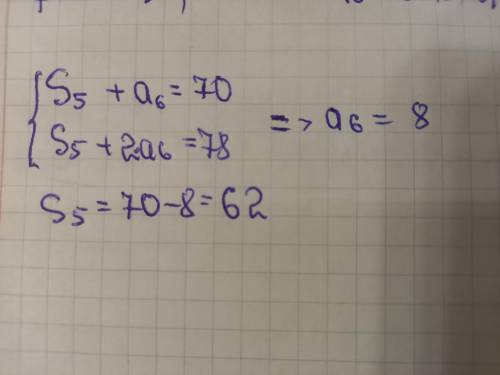 S₅ + a₆ = 70
S₅ + 2a₆ = 78
=> a₆ = 8
S₅ = 70 - 8 = 62